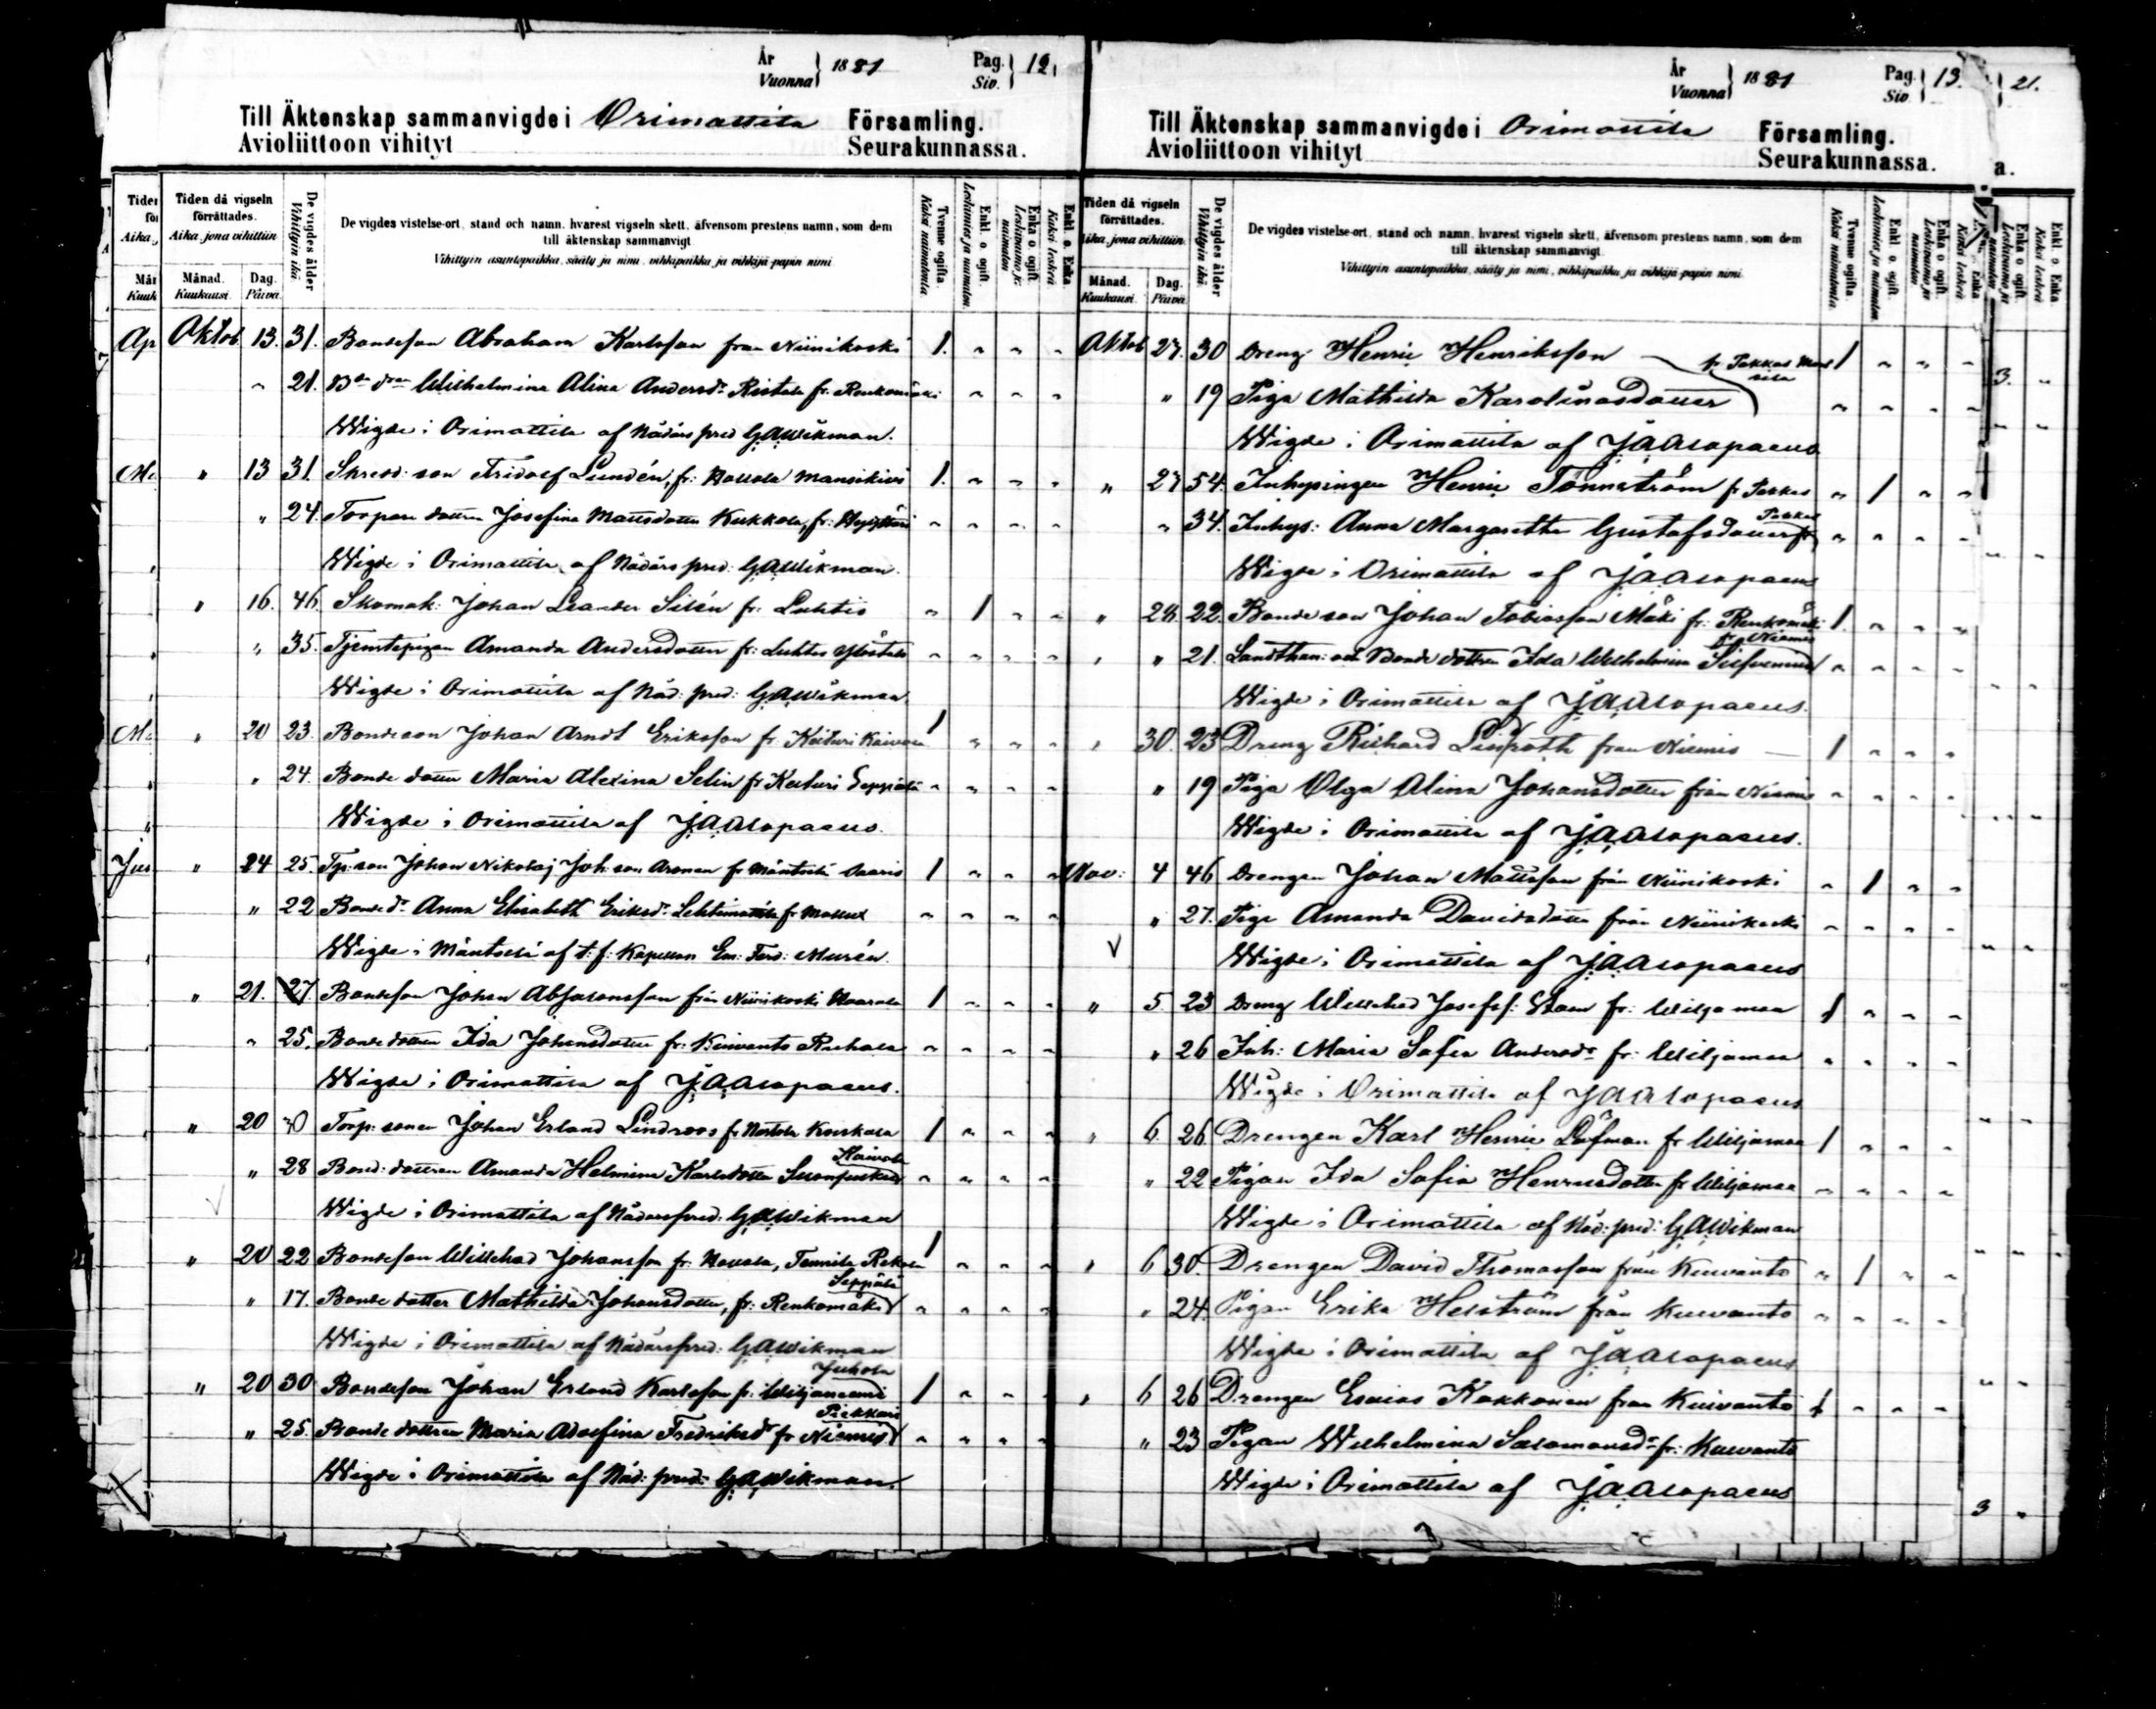 År
Vuonna } 1881
Pag.
Siv. } 12
Till Äktenskap sammanvigde i Orimattila Församling.
Avioliittoon vihityt Seurakunnassa.
Tiden då vigseln förrättades.
Aika, jona vihittiin
Månad. Kuukausi.
Dag. Päivä.
De vigdes ålder
Vihittyin ikä
De vigdes vistelse-ort, stand och namn, hvarest vigseln skett, äfvensom prestens namn, som dem
till äktenskap sammanvigt
Vihittyin asuntopaikka, sääty ja nimi, vihkipaikka ja vihkijä-papin nimi
Tvenne ogifta. Kaksi naimatonta
Enkl. o. ogift. Leskimies ja naimaton.
Enka o. ogift. Leskivaimo ja naimaton
Enkl. o. Enka Kaksi leskeä
Oktob 13. 31. Bondeson Abraham Karlsson från Niinikoski 1. " " "
" 21. Wilhelmina Alina Andersd:r Ristola fr. Renkomäki " " "
Wigde i Orimattila af Nådårs pred GAWikman.
" 13 31. Skredd: son Fridolf Lundén, fr: Hollola 1. " " "
" 24. Torpare dottren Josefina Mattsdotter Kukkola, fr: " " " "
Wigde i Orimattila af Nådårs pred: GAWikman.
" 16. 46 Skomak: Johan Leander Silén fr. Luhtis " 1 " "
" 35. Tjenstepigan Amanda Andersdotter fr: Luhtis " " " "
Wigde i Orimattila af Nåd: pred: GAWikman.
" 20 23. Bondeson Johan Arndt Eriksson fr. Keituri Kaivola 1 " " "
" 24. Bonde dotter Maria Alexina Selin fr Keituri Seppälä " " " "
Wigde i Orimattila af JAAlopaeus.
" 24 25. Johan Nikolaj Joh: son Aronen fr Mäntsälä Saaris 1 " " "
" 22 Bonde d:r Anna Elisabeth Eriksd:r Lehtimattila fr " " " "
Wigde i Mäntsälä af t: f: Kapellan Em: Ferd: Murén.
" 21. 27 Bondeson Johan Absalonsson från Niinikoski 1 " " "
" 25. Bonde dotter Ida Johansdotter fr: Kuivanto " " " "
Wigde i Orimattila af JAAlopaeus.
" 20 30 Torp: sonen Johan Erland Lindroos fr Koiskala 1 " " "
" 28 Bond: dottren Amanda Helmina Karlsdotter Kaivola " " " "
Wigde i Orimattila af Nådårspred: GAWikman
" 20 22 Bondeson Willehad Johansson fr. Hollola, 1 " " "
" 17. Bonde dotter Mathilda Johansdotter, fr: Renkomäki Seppälä " " " "
Wigde i Orimattila af Nådårspred: GAWikman
" 20 30 Bondeson Johan Erland Karlsson fr: Wiljaniemi Juhola 1 " " "
" 25. Bonde dottren Maria Adolfina Fredriksd:r fr Niemis Piekkari " " " "
Wigde i Orimattila af Nåd: pred: GAWikman.
År
Vuonna } 1881
Pag.
Siv. } 13.
Till Äktenskap sammanvigde i Orimattila Församling.
Avioliittoon vihityt Seurakunnassa.
Tiden då vigseln förrättades.
Aika, jona vihittiin
Månad. Kuukausi.
Dag. Päivä.
De vigdes ålder
Vihittyin ikä
De vigdes vistelse-ort, stand och namn, hvarest vigseln skett, äfvensom prestens namn, som dem
till äktenskap sammanvigt.
Vihittyin asuntopaikka, sääty ja nimi, vihkipaikka ja vihkijä-papin nimi
Tvenne ogifta. Kaksi naimatonta
Enkl. o. ogift. Leskimies ja naimaton.
Enka o. ogift. Leskivaimo ja naimaton
Oktob 27. 30 Dreng Henric Henriksson 1 " " "
" 19 Piga Mathilda Karolinasdotter " " " "
Wigde i Orimattila af JAAlopaeus
" 27 54. Inhysingen Henric Tönnström fr Pakkas " 1 " "
" 34. Inhys: Anna Margaretha Gustafsdotter fr Pakkas " " " "
Wigde i Orimattila af JAAlopaeus
" 28. 22. Bondeson Johan Tobiasson Mäki fr: Renkomäki 1. " " "
" 21. Landthan: och Bonde dottren Ida Wilhelmina fr Niemis " " " "
Wigde i Orimattila af JAAlopaeus.
" 30. 23 Dreng Richard Lindroth från Niemis 1 " " "
" 19 Piga Olga Alina Johansdotter från Niemis " " " "
Wigde i Orimattila af JAAlopaeus.
Nov: 4 46 Drengen Johan Mattsson från Niinikoski " 1 " "
" 27. Piga Amanda Davidsdotter från Niinikoski " " " "
Wigde i Orimattila af JAAlopaeus
" 5 23 Dreng Willehad Josefs: fr: Wiljamaa 1 " " "
" 26 Inh: Maria Sofia Andersd:r fr: Wiljamaa " " " "
Wigde i Orimattila af JAAlopaeus
" 6 26 Drengen Karl Henric Löfman fr Wiljamaa 1 " " "
" 22 Pigan Ida Sofia Henricsdotter fr Wiljamaa " " " "
Wigde i Orimattila af Nåd: pred: GAWikman
" 6 30. Drengen David Thomasson från Kuivanto " 1 " "
" 24. Pigan Erika Helström från Kuivanto " " " "
Wigde i Orimattila af JAAlopaeus
" 6 26 Drengen Esaias Kokkonen från Kuivanto 1 " " "
" 23 Pigan Wilhelmina Salomonsd:r fr: Kuivanto
Wigde i Orimattila af JAAlopaeus
21.